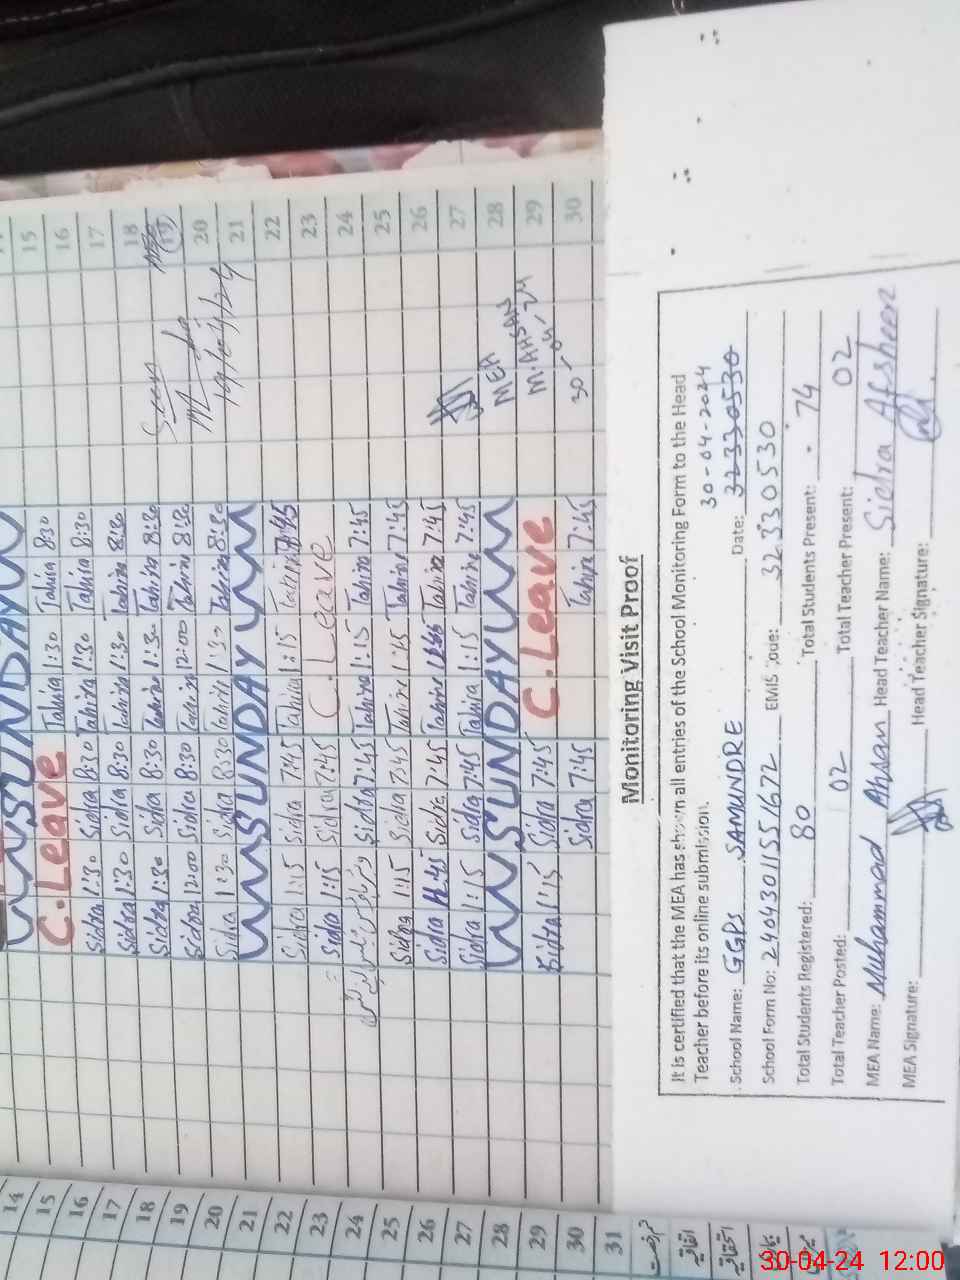 14 SUNDAY 15
15 C.Leave Tahira 1:30 Tahira 8:30 16
16 Sidra 1:30 Sidra 8:30 Tahira 1:30 Tahira 8:30 17
17 Sidra 1:30 Sidra 8:30 Tahira 1:30 Tahira 8:30 18
18 Sidra 1:30 Sidra 8:30 Tahira 1:30 Tahira 8:30 (19)
19 Sidra 12:00 Sidra 8:30 Tahira 12:00 Tahira 8:30 Seen 20
20 Sidra 1:30 Sidra 8:30 Tahira 1:30 Tahira 8:30 19/04/24 21
21 SUNDAY 22
22 Sidra 1:15 Sidra 7:45 Tahira 1:15 Tahira 7:45 23
23 Sidra 1:15 Sidra 7:45 C. Leave 24
24 Sidra 7:45 Tahira 1:15 Tahira 7:45 25
25 Sidra 1:15 Sidra 7:45 Tahira 1:15 Tahira 7:45 26
26 Sidra 11:45 Sidra 7:45 Tahira Tahira 7:45 27
27 Sidra 1:15 Sidra 7:45 Tahira 1:15 Tahira 7:45 28
28 SUNDAY MEA
29 Sidra 1:15 Sidra 7:45 C.Leave M.AHSAN 29
30 Sidra 7:45 Tahira 7:45 30-04-24 30
31
Monitoring Visit Proof
It is certified that the MEA has shown all entries of the School Monitoring Form to the Head
Teacher before its online submission. 30-04-2024
School Name: GGPS SAMUNDRE Date: 32330530
School Form No: 24043011551672 EMIS Code: 32330530
Total Students Registered: 80 Total Students Present: 74
Total Teacher Posted: 02 Total Teacher Present: 02
MEA Name: Muhammad Ahsan Head Teacher Name: Sidra Afsheen
MEA Signature: Head Teacher Signature:
30-04-24 12:00